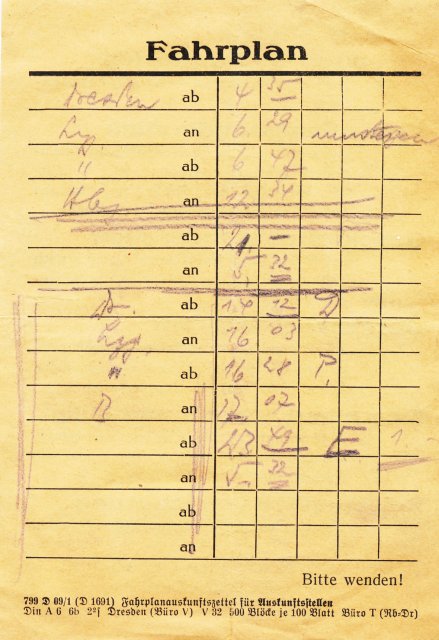 Fahrplan
Dresden ab 4 35
Lzg. an 6 29
" ab 6 47
Hbg an 12 34
ab 21. –
an 5. 32
ab 14 12 D
Lzg. an 16 03
" ab 16 28 P.
B an 17 07
ab 23 49 E 1.
an 5. 32
ab
an
Bitte wenden!
799 D 09/1 (D 1691) Fahrplanauskunftszettel für Auskunftsstellen
Din A 6 6b 2ʰf Dresden (Büro V) V 32 500 Blöcke je 100 Blatt Büro T (Rb=Dr)